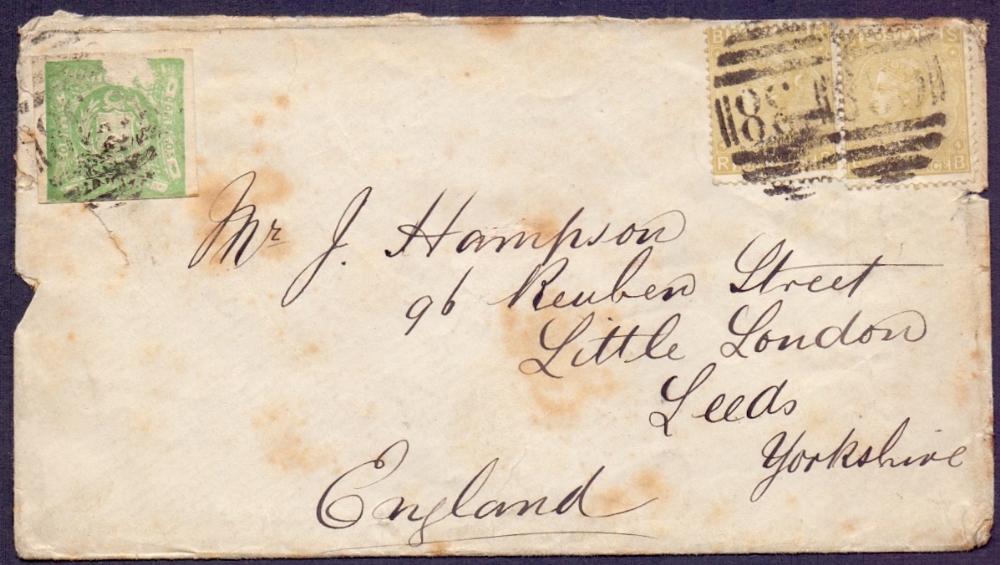 Mr J. Hampson
96 Reuben Street
Little London
Leeds
Yorkshire
England